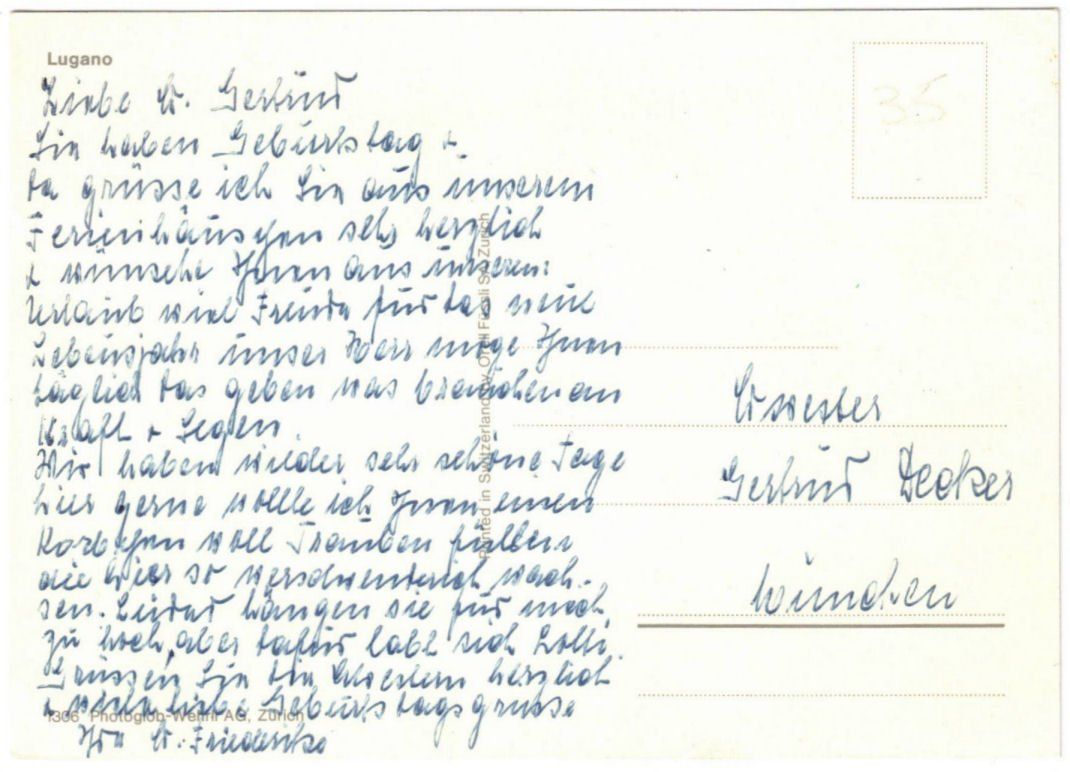 Lugano
Liebe Sr. Gertrud
Sie haben Geburtstag +
da grüsse ich Sie aus unserem
Ferienhäuschen sehr herzlich
+ wünsche Ihnen aus unserem
Urlaub viel Freude für das neue
Lebensjahr unser Herr möge Ihnen
täglich das geben was brauchen an
Kraft + Segen.
Wir haben wieder sehr schöne Tage
hier gerne wollte ich Ihnen einen
Körbchen voll Trauben füllen
die hier so verschwenderich wach-
sen. Leider hängen sie für mich
zu hoch, aber dafür labt sich Lotti.
Grüssen Sie die Schwestern herzlich
+ viele liebe Geburtstagsgrüsse
Ihre Sr. Friederike
1306 Photoglob-Wehrli AG, Zürich
Printed in Switzerland by Orell Füssli SA Zürich
35
Schwester
Gertrud Decker
München